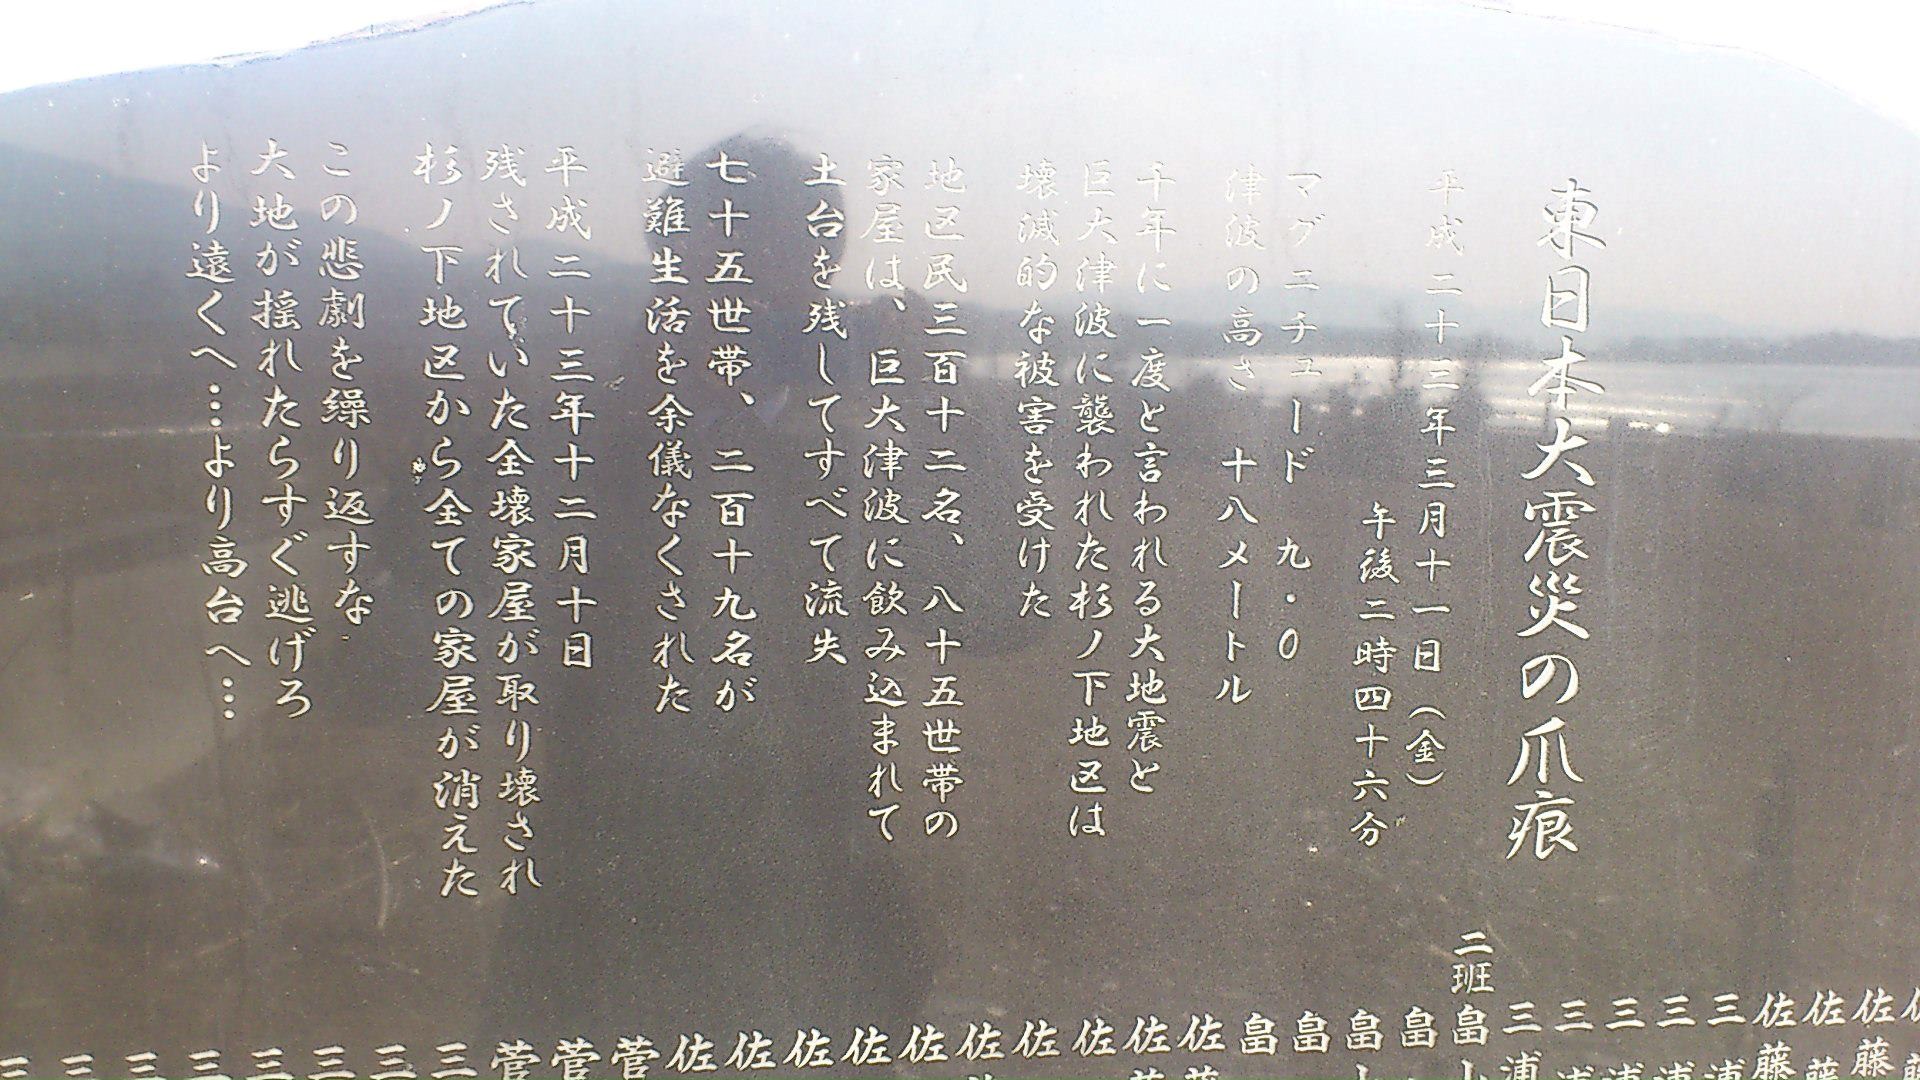 東日本大震災の爪痕
平成二十三年三月十一日（金）
午後二時四十六分
マグニチュード 九・0
津波の高さ 十八メートル
千年に一度と言われる大地震と
巨大津波に襲われた杉ノ下地区は
壊滅的な被害を受けた
地区民三百十二名、八十五世帯の
家屋は、巨大津波に飲み込まれて
土台を残してすべて流失
七十五世帯、二百十九名が
避難生活を余儀なくされた
平成二十三年十二月十日
残されていた全壊家屋が取り壊され
杉ノ下地区から全ての家屋が消えた
この悲劇を繰り返すな
大地が揺れたらすぐ逃げろ
より遠くへ…より高台へ…
佐藤
佐藤
佐藤
佐藤
三浦
三浦
三浦
三浦
三浦
二班
畠
畠
畠
畠
畠
佐
佐
佐
佐
佐
佐
佐
佐
佐
佐
菅
菅
菅
三
三
三
三
三
三
三
三
三